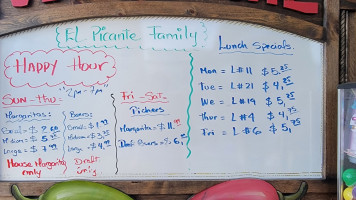 EL Picante Family
HAPPY Hour
"2pm - 7pm"
SUN - Thu =
Margaritas:
Small = $
Midium = $ 5
Large = $ 7
House Margarita
only
Beers:
Small = $
Midium = $
Large = $ 4
Draft
only
Fri - Sat
Pichers
Margarita = $ 11.
Draft Beers = $ 6.
Lunch Specials.
Mon = L#11 $ 5.25
Tue = L#21 $ 4,
We = L#19 $ 5,
Thur = L#4 $ 4,
Fri = L#6 $ 5,